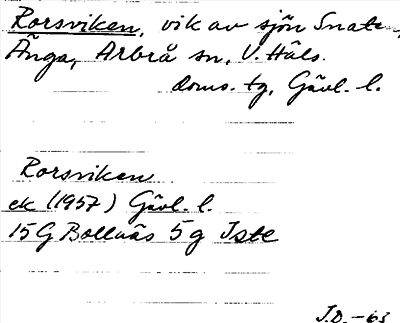 Rorsviken, vik av sjön Snaten,
Änga, Arbrå sn, V. Häls.
doms. tg, Gävl. l.
Rorsviken
ek (1957) Gävl. l.
15 G Bollnäs 5 g Iste
J.D. -63